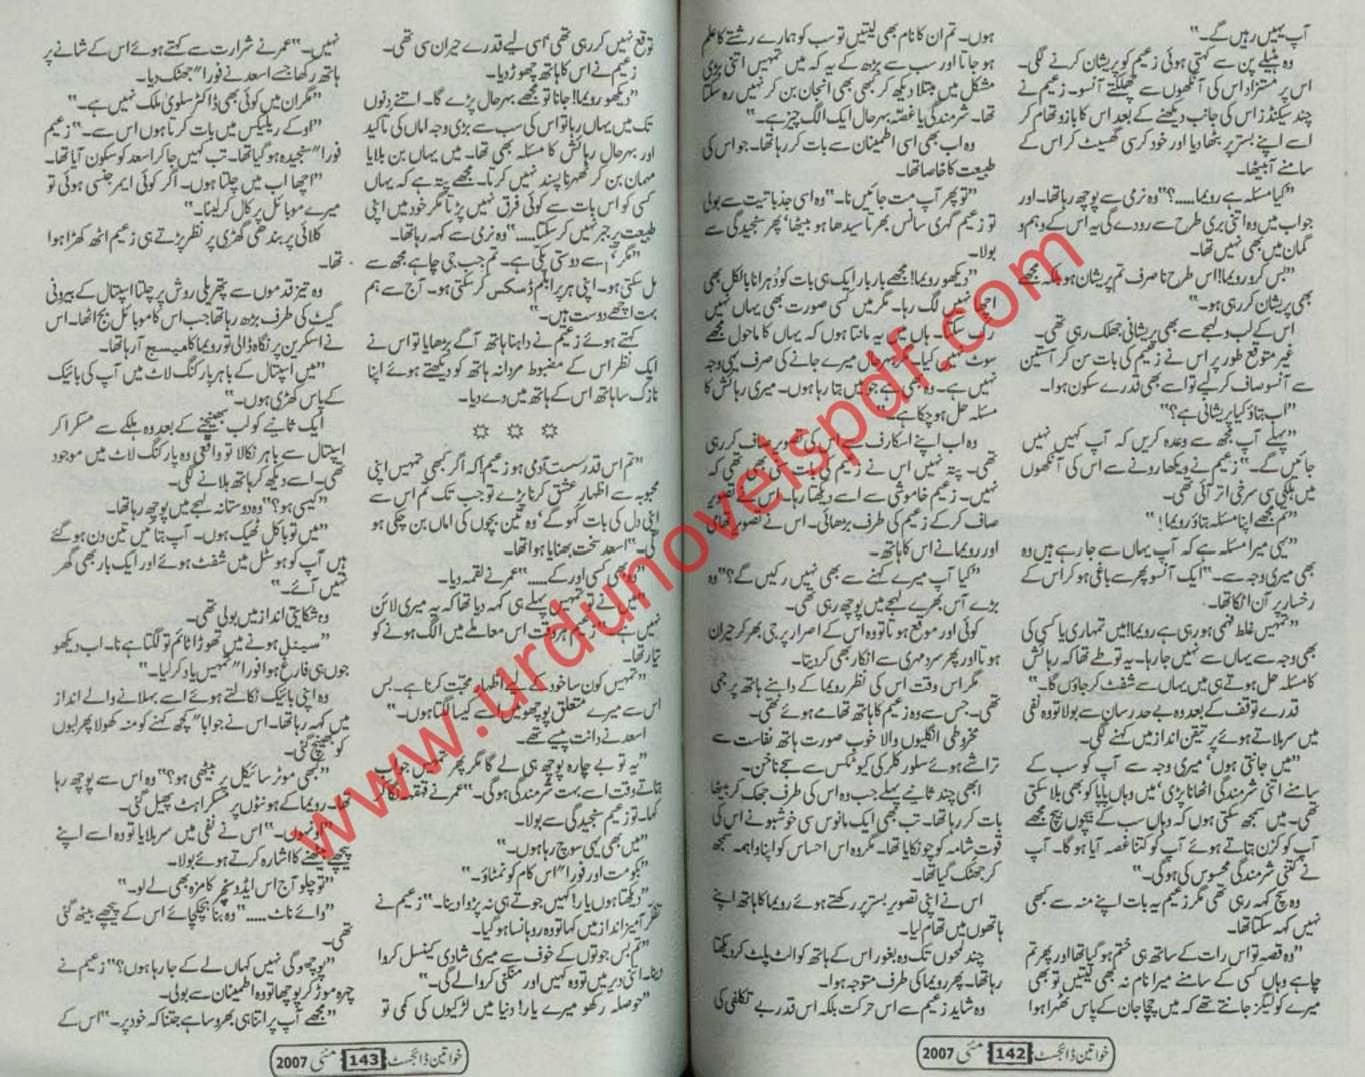 آپ یہیں رہیں گے۔“
وہ ہٹیلے پن سے کہتی ہوئی زعیم کو پریشان کرنے لگی۔
اس پر مستزاد اس کی آنکھوں سے چھلکتے آنسو۔ زعیم نے
چند سیکنڈز اس کی جانب دیکھنے کے بعد اس کا بازو تھام کر
اسے اپنے بستر پر بٹھا دیا اور خود کرسی گھسیٹ کر اس کے
سامنے آبیٹھا۔
”کیا مسئلہ ہے رویما.....؟“ وہ نرمی سے پوچھ رہا تھا۔ اور
جواب میں وہ اتنی بری طرح سے رو دے گی یہ اس کے وہم و
گمان میں بھی نہیں تھا۔
”بس کرو رویما! اس طرح نا صرف تم پریشان ہو بلکہ مجھے
بھی پریشان کر رہی ہو۔“
اس کے لب و لہجے سے بھی پریشانی جھلک رہی تھی۔
غیر متوقع طور پر اس نے زعیم کی بات سن کر آستین
سے آنسو صاف کر لیے تو اسے بھی قدرے سکون ہوا۔
”اب بتاؤ کیا پریشانی ہے؟“
”پہلے آپ مجھ سے وعدہ کریں کہ آپ کہیں نہیں
جائیں گے۔“ زعیم نے دیکھا رونے سے اس کی آنکھوں
میں ہلکی سی سرخی اتر آئی تھی۔
”تم مجھے اپنا مسئلہ بتاؤ رویما! “
”یہی میرا مسئلہ ہے کہ آپ یہاں سے جا رہے ہیں وہ
بھی میری وجہ سے۔“ ایک آنسو پھر سے باغی ہو کر اس کے
رخسار پر آن اٹکا تھا۔
”تمہیں غلط فہمی ہو رہی ہے رویما! میں تمہاری یا کسی کی
بھی وجہ سے یہاں سے نہیں جا رہا۔ یہ تو طے تھا کہ رہائش
کا مسئلہ حل ہوتے ہی میں یہاں سے شفٹ کر جاؤں گا۔“
قدرے توقف کے بعد وہ بے حد رسان سے بولا تو وہ نفی
میں سر ہلاتے ہوئے پر یقین انداز میں کہنے لگی۔
”میں جانتی ہوں‘ میری وجہ سے آپ کو سب کے
سامنے اتنی شرمندگی اٹھانا پڑی‘ میں وہاں پاپا کو بھی بلا سکتی
تھی۔ میں سمجھ سکتی ہوں کہ وہاں سب کے بیچوں بیچ مجھے
آپ کو کزن بتاتے ہوئے آپ کو کتنا غصہ آیا ہو گا۔ آپ
نے کتنی شرمندگی محسوس کی ہوگی۔“
وہ سچ کہہ رہی تھی مگر زعیم یہ بات اپنے منہ سے کبھی
نہیں کہہ سکتا تھا۔
”وہ قصہ تو اس رات کے ساتھ ہی ختم ہو گیا تھا اور پھر تم
چاہے وہاں کسی کے سامنے میرا نام نہ بھی لیتیں تو بھی
میرے کولیگز جانتے تھے کہ میں چچا جان کے پاس ٹھہرا ہوا
ہوں۔ تم ان کا نام بھی لیتیں تو سب کو ہمارے رشتے کا علم
ہو جاتا اور سب سے بڑھ کے یہ کہ میں تمہیں اتنی بڑی
مشکل میں مبتلا دیکھ کر کبھی بھی انجان بن کر نہیں رہ سکتا
تھا۔ شرمندگی یا غصّہ بہر حال ایک الگ چیز ہے۔“
وہ اب بھی اسی اطمینان سے بات کر رہا تھا۔ جو اس کی
طبیعت کا خاصا تھا۔
”تو پھر آپ مت جائیں نا۔“ وہ اسی جذباتیت سے بولی
تو زعیم گہری سانس بھرتا سیدھا ہو بیٹھا‘ پھر سنجیدگی سے
بولا۔
”دیکھو رویما! مجھے بار بار ایک ہی بات کو دُہرانا بالکل بھی
اچھا نہیں لگ رہا۔ مگر میں کسی صورت بھی یہاں نہیں
رک سکتا۔ ہاں میں یہ مانتا ہوں کہ یہاں کا ماحول مجھے
سوٹ نہیں کیا بہر حال میرے جانے کی صرف یہی وجہ
نہیں ہے۔ وہ بھی ہے جو میں بتا رہا ہوں۔ میری رہائش کا
مسئلہ حل ہو چکا ہے۔“
وہ اب اپنے اسکارف سے اس کی تصویر صاف کر رہی
تھی۔ پتہ نہیں اس نے زعیم کی بات سنی بھی تھی کہ
نہیں۔ زعیم خاموشی سے اسے دیکھتا رہا۔ اس نے تصویر
صاف کر کے زعیم کی طرف بڑھائی۔ اس نے تصویر تھامی
اور رویما نے اس کا ہاتھ۔
”کیا آپ میرے کہنے سے بھی نہیں رکیں گے؟“ وہ
بڑے آس بھرے لہجے میں پوچھ رہی تھی۔
کوئی اور موقع ہوتا تو وہ اس کے اصرار پر جی بھر کر حیران
ہوتا اور پھر سرد مہری سے انکار بھی کر دیتا۔
مگر اس وقت اس کی نظر رویما کے داہنے ہاتھ پر جمی
تھی۔ جس سے وہ زعیم کا ہاتھ تھامے ہوئے تھی۔
مخروطی انگلیوں والا خوب صورت ہاتھ نفاست سے
تراشے ہوئے سلور کلر کی کیوٹکس سے سجے ناخن۔
ابھی چند ثانیے پہلے جب وہ اس کی طرف جھک کر بیٹھا
بات کر رہا تھا۔ تب بھی ایک مانوس سی خوشبو نے اس کی
قوت شامہ کو چونکایا تھا۔ مگر وہ اس احساس کو اپنا واہمہ سمجھ
کر جھٹک گیا تھا۔
اس نے اپنی تصویر بستر پر رکھتے ہوئے رویما کا ہاتھ اپنے
ہاتھوں میں تھام لیا۔
چند لمحوں تک وہ بغور اس کے ہاتھ کو الٹ پلٹ کر دیکھتا
رہا تھا۔ پھر رویما کی طرف متوجہ ہوا۔
وہ شاید زعیم سے اس حرکت بلکہ اس قدر بے تکلفی کی
خواتین ڈائجسٹ 142 مئی 2007
توقع نہیں کر رہی تھی‘ اسی لیے قدرے حیران سی تھی۔
زعیم نے اس کا ہاتھ چھوڑ دیا۔
”دیکھو رویما! جانا تو مجھے بہر حال پڑے گا۔ اتنے دنوں
تک میں یہاں رہا تو اس کی سب سے بڑی وجہ اماں کی تاکید
اور بہر حال رہائش کا مسئلہ بھی تھا۔ میں یہاں بن بلایا
مہمان بن کر ٹھہرنا پسند نہیں کرتا۔ مجھے پتہ ہے کہ یہاں
کسی کو اس بات سے کوئی فرق نہیں پڑتا مگر خود میں اپنی
طبیعت پر جبر نہیں کر سکتا.....“ وہ نرمی سے کہہ رہا تھا۔
”مگر‘ اسے دوستی پکی ہے۔ تم جب جی چاہے مجھ سے
مل سکتی ہو۔ اپنی ہر پرابلم ڈسکس کر سکتی ہو۔ آج سے ہم
بہت اچھے دوست ہیں۔“
کہتے ہوئے زعیم نے داہنا ہاتھ آگے بڑھایا تو اس نے
ایک نظر اس کے مضبوط مردانہ ہاتھ کو دیکھتے ہوئے اپنا
نازک سا ہاتھ اس کے ہاتھ میں دے دیا۔
☼ ☼ ☼
”تم اس قدر سست آدمی ہو زعیم! کہ اگر کبھی تمہیں اپنی
محبوبہ سے اظہار عشق کرنا پڑے تو جب تک تم اس سے
اپنی دل کی بات کہو گے‘ وہ تین بچوں کی اماں بن چکی ہو
گی۔“ اسعد سخت بھنایا ہوا تھا۔
”وہ بھی کسی اور کے.....“ عمر نے لقمہ دیا۔
”میں نے تو تمہیں پہلے ہی کہہ دیا تھا کہ یہ میری لائن
نہیں ہے۔“ زعیم ہر وقت اس معاملے میں الگ ہونے کو
تیار تھا۔
”تمہیں کون سا خود کے لیے اظہار محبت کرنا ہے۔ بس
اس سے میرے متعلق پوچھو میں اسے کیسا لگتا ہوں۔“
اسعد نے دانت پیسے تھے۔
”یہ تو بے چارہ پوچھ ہی لے گا مگر پھر تمہیں جواب
بتاتے وقت اسے بہت شرمندگی ہوگی۔“ عمر نے قہقہہ لگا کر
کہا۔ تو زعیم سنجیدگی سے بولا۔
”میں بھی یہی سوچ رہا ہوں۔“
”بکو مت اور فوراً اس کام کو نمٹاؤ۔“
”دیکھتا ہوں یار! کہیں جوتے ہی نہ پڑوا دینا۔“ زعیم نے
تفکر آمیز انداز میں کہا تو وہ روہانسا ہو گیا۔
”تم بس جوتوں کے خوف سے میری شادی کینسل کروا
دینا۔ اتنی دیر میں تو وہ کہیں اور منگنی کروا لے گی۔“
”حوصلہ رکھو میرے یار! دنیا میں لڑکیوں کی کمی تو
نہیں۔“ عمر نے شرارت سے کہتے ہوئے اس کے شانے پر
ہاتھ رکھا جسے اسعد نے فوراً جھٹک دیا۔
”مگر ان میں کوئی بھی ڈاکٹر سلویٰ ملک نہیں ہے۔“
”اوکے ریلیکس میں بات کرتا ہوں اس سے۔“ زعیم
فوراً سنجیدہ ہو گیا تھا۔ تب کہیں جا کر اسعد کو سکون آیا تھا۔
”اچھا اب میں چلتا ہوں۔ اگر کوئی ایمرجنسی ہوئی تو
میرے موبائل پر کال کر لینا۔“
کلائی پر بندھی گھڑی پر نظر پڑتے ہی زعیم اٹھ کھڑا ہوا
تھا۔
وہ تیز قدموں سے پتھریلی روش پر چلتا اسپتال کے بیرونی
گیٹ کی طرف بڑھ رہا تھا جب اس کا موبائل بج اٹھا۔ اس
نے اسکرین پر نگاہ ڈالی تو رویما کا میسج آ رہا تھا۔
”میں اسپتال کے باہر پارکنگ لاٹ میں آپ کی بائیک
کے پاس کھڑی ہوں۔“
ایک ثانیے کو لب بھینچنے کے بعد وہ ہلکے سے مسکرا کر
اسپتال سے باہر نکلا تو واقعی وہ پارکنگ لاٹ میں موجود
تھی۔ اسے دیکھ کر ہاتھ ہلانے لگی۔
”کیسی ہو؟“ وہ دوستانہ لہجے میں پوچھ رہا تھا۔
”میں تو بالکل ٹھیک ہوں۔ آپ بتائیں تین دن ہو گئے
ہیں آپ کو ہوسٹل میں شفٹ ہوئے اور ایک بار بھی گھر
نہیں آئے۔“
وہ شکایتی انداز میں بولی تھی۔
”سیٹل ہونے میں تھوڑا ٹائم تو لگتا ہے نا۔ اب دیکھو
جوں ہی فارغ ہوا فوراً تمہیں یاد کر لیا۔“
وہ اپنی بائیک نکالتے ہوئے اسے بہلانے والے انداز
میں کہہ رہا تھا۔ اس نے جواباً کچھ کہنے کو منہ کھولا پھر لبوں
کو بھینچ گئی۔
”کبھی موٹر سائیکل پر بیٹھی ہو؟“ وہ اس سے پوچھ رہا
تھا۔ رویما کے ہونٹوں پر مسکراہٹ پھیل گئی۔
”اونہوں۔“ اس نے نفی میں سر ہلایا تو وہ اسے اپنے
پیچھے بیٹھنے کا اشارہ کرتے ہوئے بولا۔
”تو چلو آج اس ایڈونچر کا مزہ بھی لے لو۔“
”وائے ناٹ.....“ وہ بنا ہچکچائے اس کے پیچھے بیٹھ گئی
تھی۔
”پوچھو گی نہیں کہاں لے کے جا رہا ہوں؟“ زعیم نے
چہرہ موڑ کر پوچھا تو وہ اطمینان سے بولی۔
”مجھے آپ پر اتنا ہی بھروسا ہے جتنا کہ خود پر۔“ اس کے
خواتین ڈائجسٹ 143 مئی 2007
www.urdunovelspdf.com